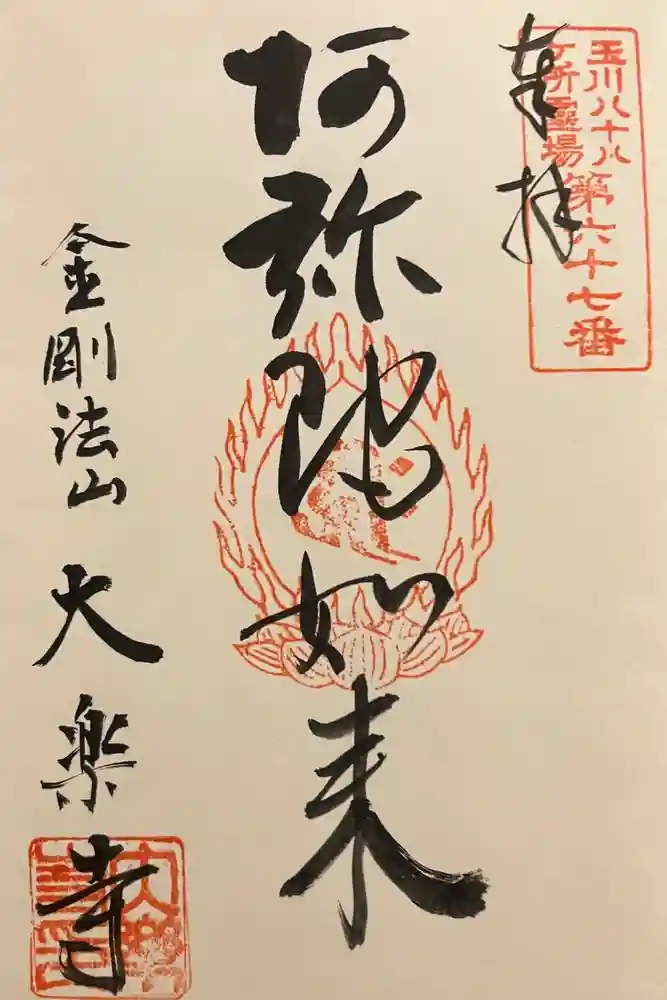 奉拝
玉川八十八
ヶ所霊場
第六十七番
阿弥陀如来
金剛法山
大楽寺